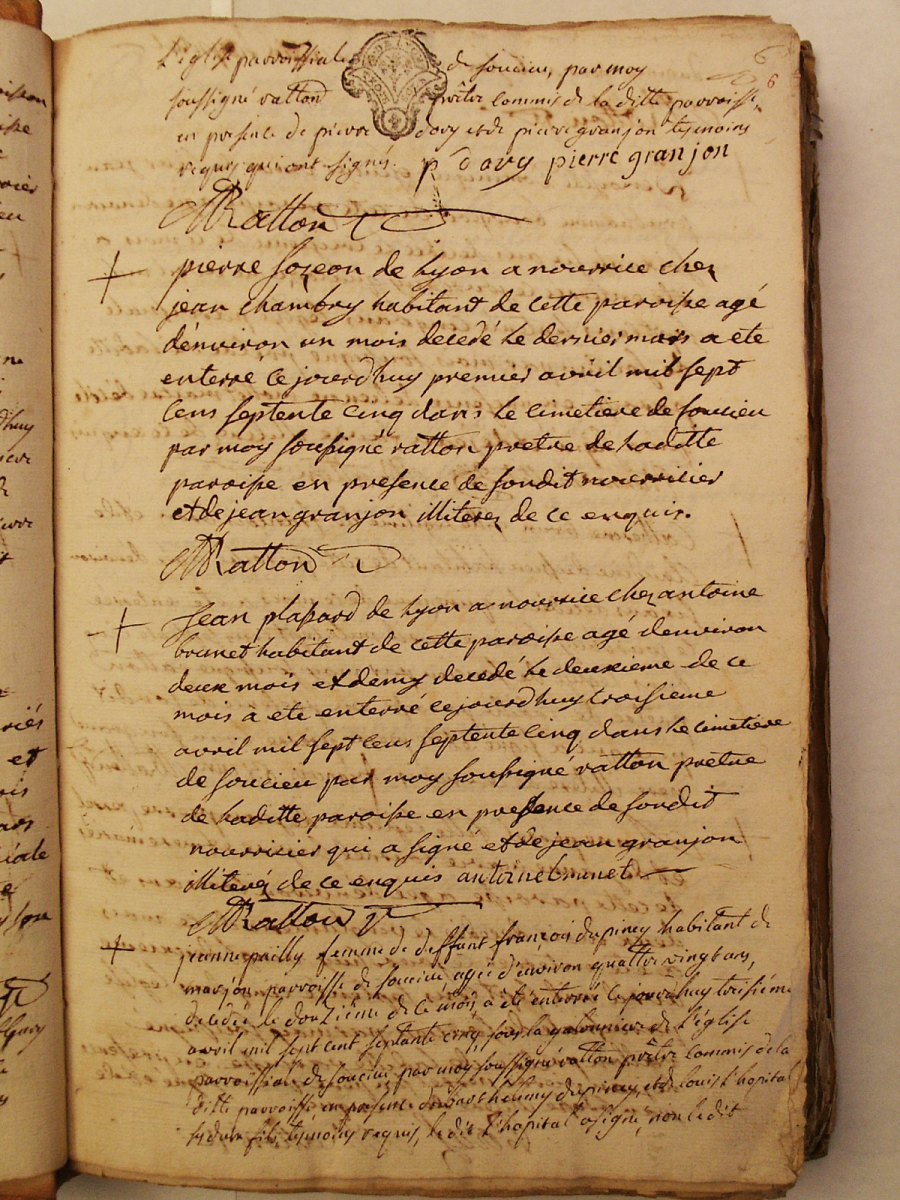 6
6
L'eglise parroissiale de soucieu, par moy
soussigné ratton prêtre commis de la ditte parroisse,
en presence de pierre davy et de pierre granjon tesmoins
requis qui ont signés. p davy pierre granjon
Ratton
pierre de Lyon a nourrice chez
jean chambry habitant de cette paroisse agé
dénviron un mois decedé le dernier mars a ete
enterré ce jourdhuy premier avril mil sept
cens septente cinq dans le cimetiere de soucieu
par moy soussigné ratton pretre de laditte
paroisse en presence de sondit nourricier
et de jean granjon illiterez de ce enquis.
Ratton
jean plassard de Lyon a nourrice chez antoine
brunet habitant de cette paroisse agé denviron
deux mois et demy decedé le deuxieme de ce
mois à ete enterré ce jourdhuy troisieme
avril mil sept cens septente cinq dans le cimetiere
de soucieu par moy soussigné ratton pretre
de laditte paroisse en presence de sondit
nourricier qui a signé et de jean granjon
illiteré de ce enquis antoine brunet
Ratton
jeanne pailly femme de deffunt françois dupiney habitant de
marjon parroisse de soucieu, agée d'environ quattre vingt ans,
decedée le douzième de ce mois, a été enterrée ce jourd'huy treisième
avril mil sept cent septante cinq, sous la de L'église
parroissiale de soucieu par moy soussigné ratton prêtre commis de la
ditte parroisse en presence de barthelemy dupiney, et de louis l'hopital
fils, tesmoins requis, le dit l'hopital a signé, non le dit